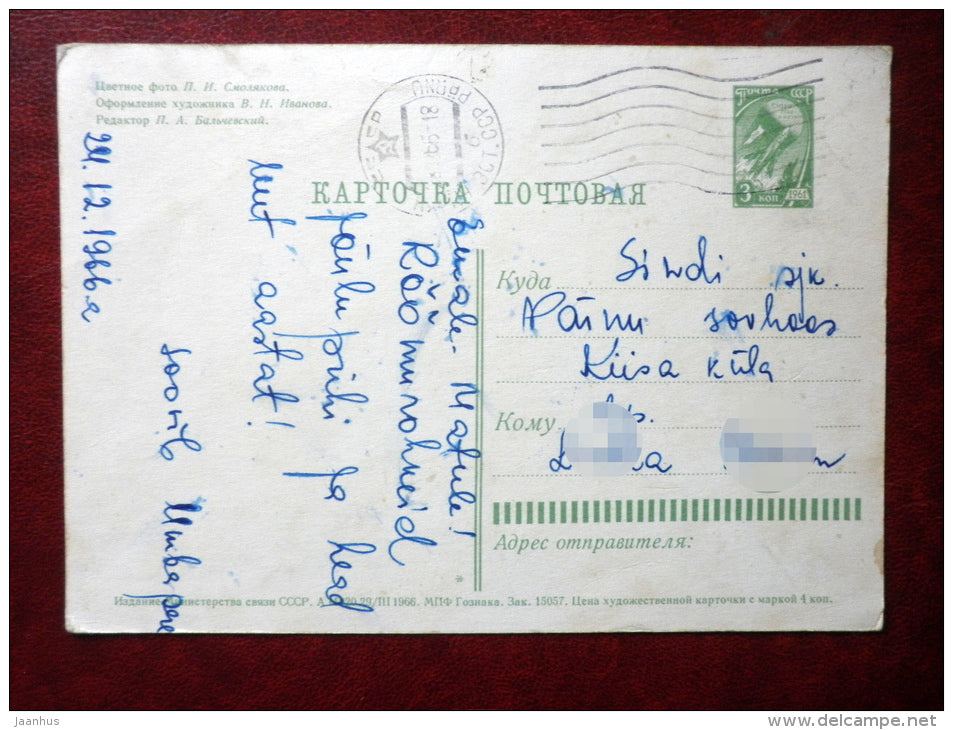 Цветное фото П. И. Смолякова.
Оформление художника В. Н. Иванова.
Редактор П. А. Бальчевский.
ПОЧТА СССР
3 КОП
1961
PÄRNU
КАРТОЧКА ПОЧТОВАЯ
Emale - Matule!
Rõõmurohkeid
jõulupühi ja head
uut aastat!
soovib
24. 12. 1966a
Куда Sindi sjk.
Pärnu sovhoos
Kiisa küla
Кому
Адрес отправителя:
Издание Министерства связи СССР. 29/III 1966. МПФ Гознака. Зак. 15057. Цена художественной карточки с маркой 4 коп.
jaanhus
www.delcampe.net